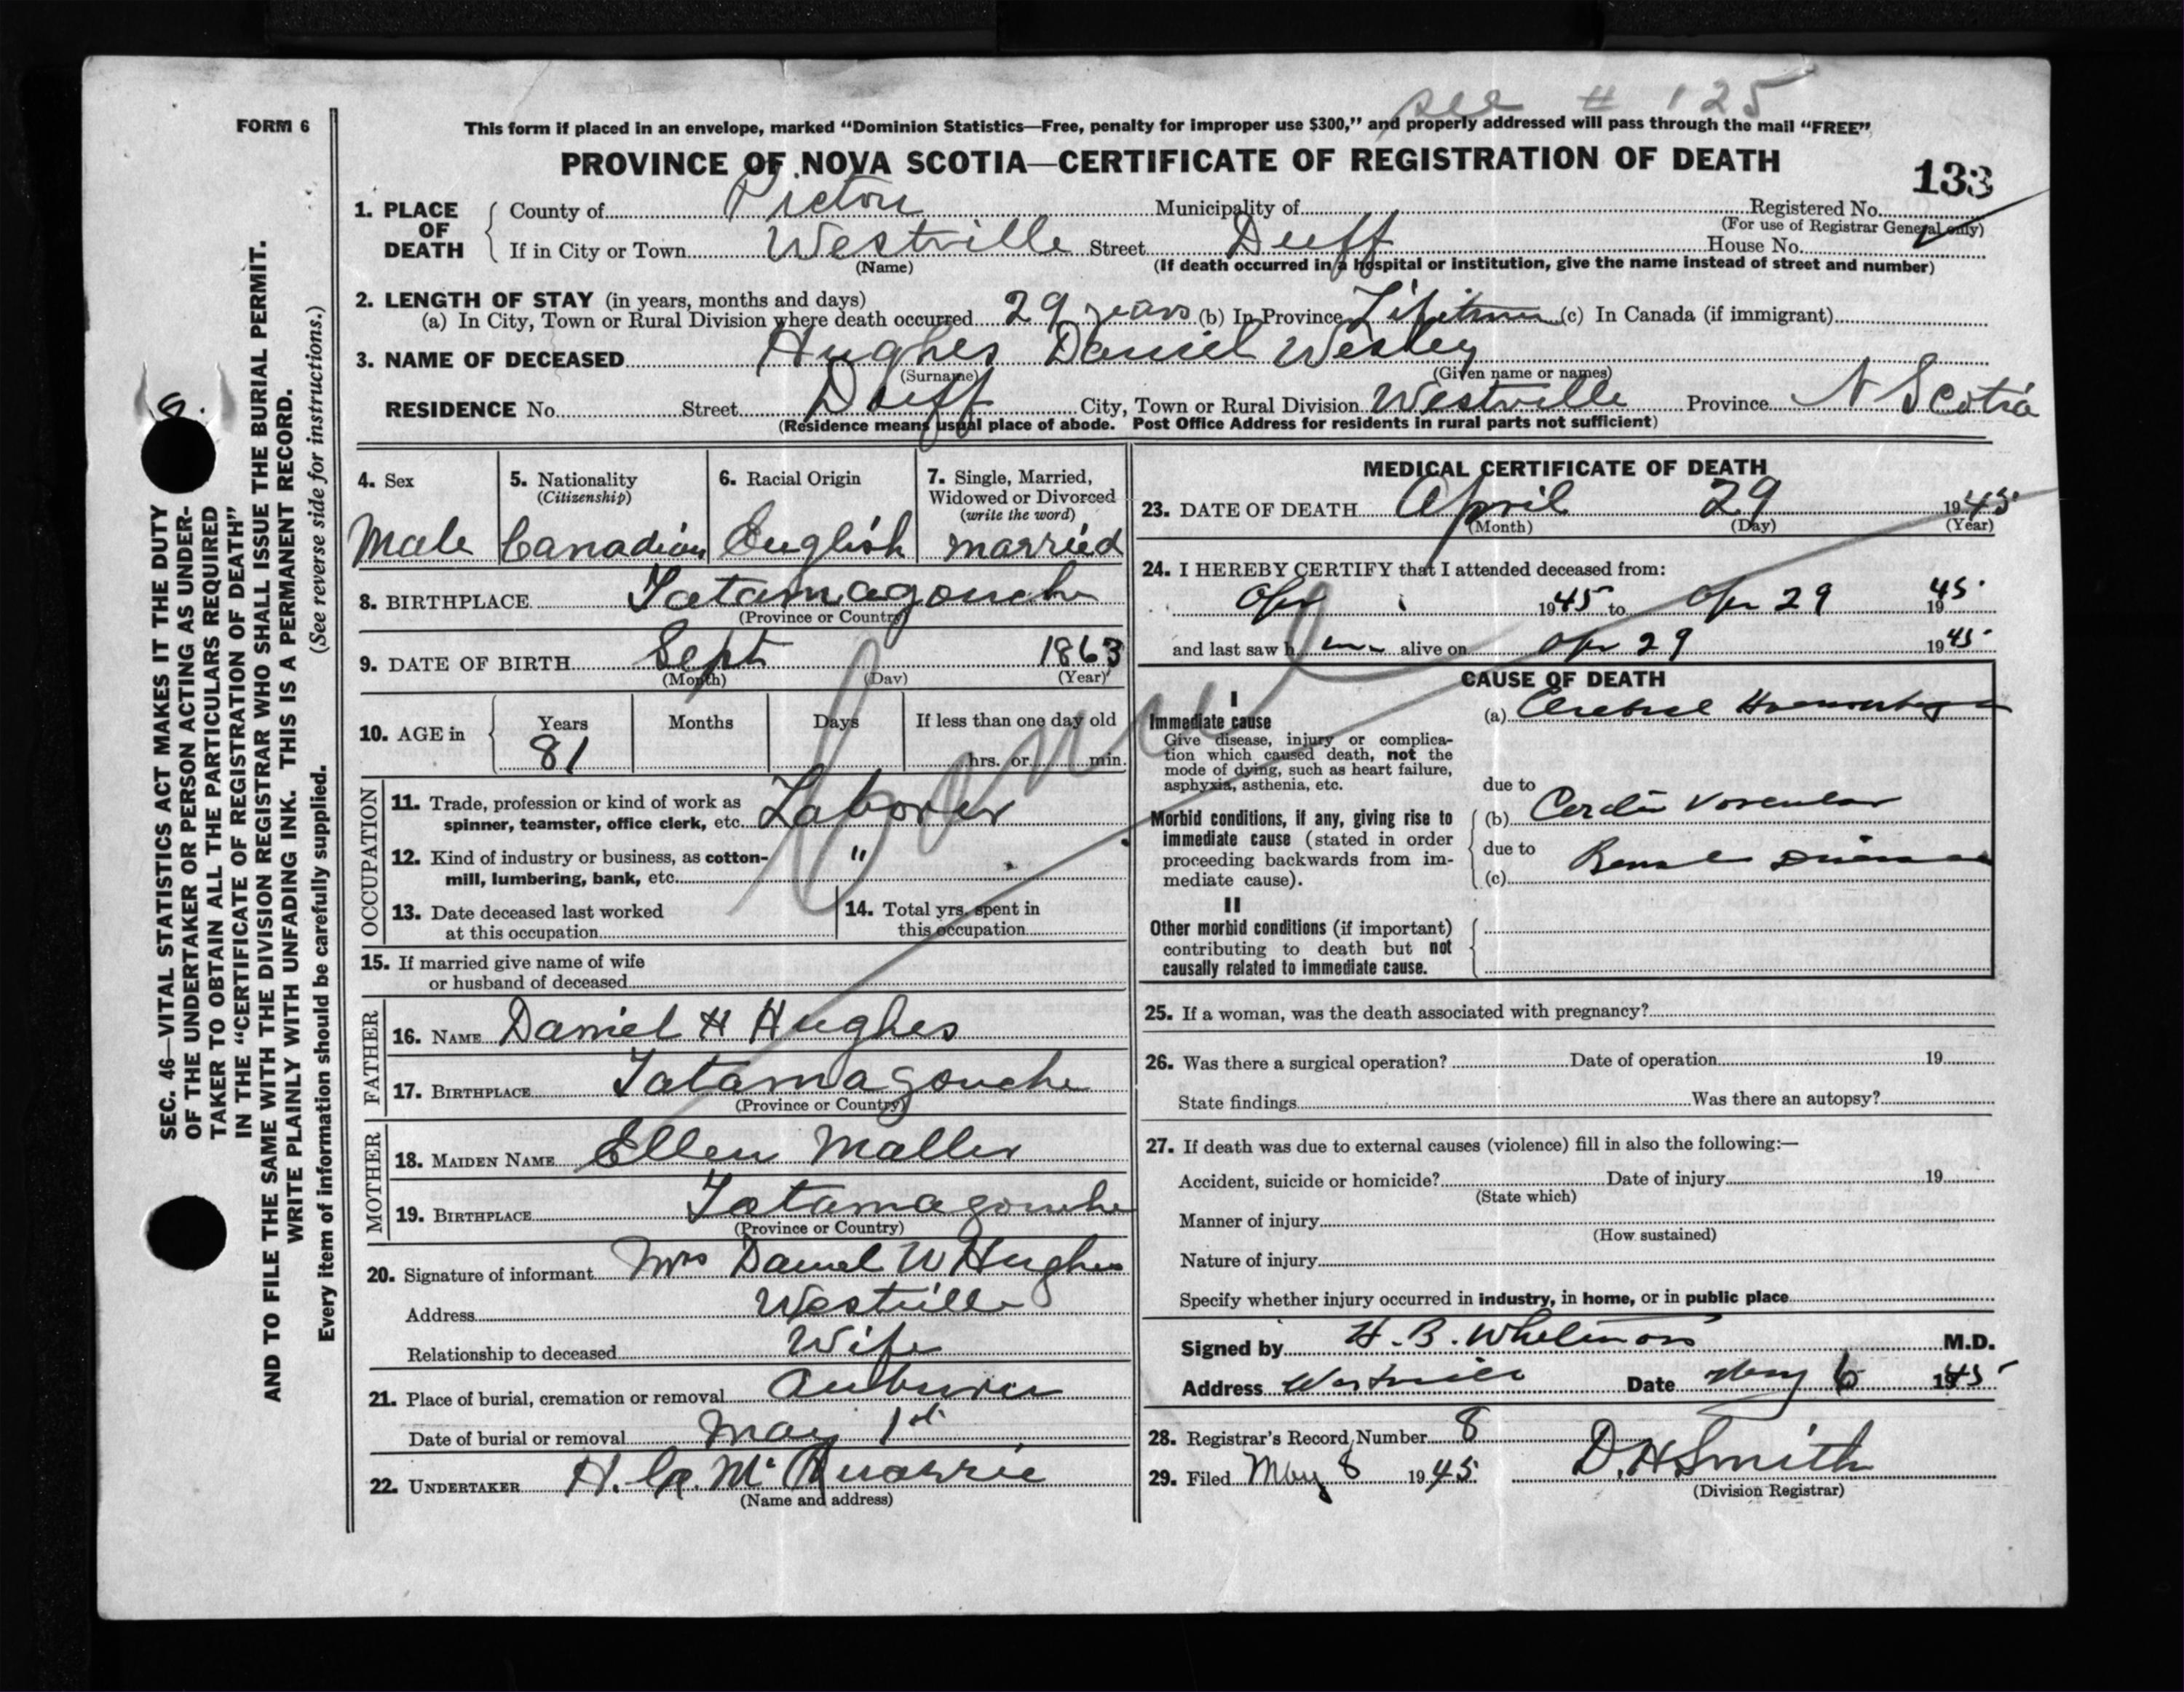 see # 125
FORM 6
This form if placed in an envelope, marked “Dominion Statistics—Free, penalty for improper use $300,” and properly addressed will pass through the mail “FREE”
PROVINCE OF NOVA SCOTIA—CERTIFICATE OF REGISTRATION OF DEATH
133
1. PLACE OF DEATH
County of Pictou Municipality of Registered No.
(For use of Registrar General only)
If in City or Town Westville Street Duff House No.
(Name) (If death occurred in a hospital or institution, give the name instead of street and number)
2. LENGTH OF STAY (in years, months and days)
(a) In City, Town or Rural Division where death occurred 29 years (b) In Province Lifetime (c) In Canada (if immigrant)
3. NAME OF DECEASED Hughes Daniel Wesley
(Surname) (Given name or names)
RESIDENCE No. Street Duff City, Town or Rural Division Westville Province N Scotia
(Residence means usual place of abode. Post Office Address for residents in rural parts not sufficient)
4. Sex
Male
5. Nationality
(Citizenship)
Canadian
6. Racial Origin
English
7. Single, Married,
Widowed or Divorced
(write the word)
married
8. BIRTHPLACE Tatamagouche
(Province or Country)
9. DATE OF BIRTH Sept 1863
(Month) (Day) (Year)
10. AGE in
Years Months Days If less than one day old
81 hrs. or min.
OCCUPATION
11. Trade, profession or kind of work as
spinner, teamster, office clerk, etc. Laborer
12. Kind of industry or business, as cotton-
mill, lumbering, bank, etc. "
13. Date deceased last worked
at this occupation
14. Total yrs. spent in
this occupation
15. If married give name of wife
or husband of deceased
FATHER
16. NAME Daniel H Hughes
17. BIRTHPLACE Tatamagouche
(Province or Country)
MOTHER
18. MAIDEN NAME Ellen
19. BIRTHPLACE Tatamagouche
(Province or Country)
20. Signature of informant Mrs Daniel W Hughes
Address Westville
Relationship to deceased Wife
21. Place of burial, cremation or removal Auburn
Date of burial or removal May 1st
22. UNDERTAKER H. McQuarrie
(Name and address)
MEDICAL CERTIFICATE OF DEATH
23. DATE OF DEATH April 29 1945
(Month) (Day) (Year)
24. I HEREBY CERTIFY that I attended deceased from:
Apr 1 1945 to Apr 29 1945
and last saw him alive on Apr 29 1945
CAUSE OF DEATH
I
Immediate cause
Give disease, injury or complica-
tion which caused death, not the
mode of dying, such as heart failure,
asphyxia, asthenia, etc.
(a) Cerebral Haemorrhage
due to
Morbid conditions, if any, giving rise to
immediate cause (stated in order
proceeding backwards from im-
mediate cause).
(b) Cardio Vascular
due to
(c) Renal Disease
II
Other morbid conditions (if important)
contributing to death but not
causally related to immediate cause.
25. If a woman, was the death associated with pregnancy?
26. Was there a surgical operation? Date of operation 19
State findings Was there an autopsy?
27. If death was due to external causes (violence) fill in also the following:—
Accident, suicide or homicide? Date of injury 19
(State which)
Manner of injury
(How sustained)
Nature of injury
Specify whether injury occurred in industry, in home, or in public place
Signed by H. B. M.D.
Address Westville Date May 6 1945
28. Registrar's Record Number 8
29. Filed May 8 1945 D. H Smith
(Division Registrar)
SEC. 46—VITAL STATISTICS ACT MAKES IT THE DUTY
OF THE UNDERTAKER OR PERSON ACTING AS UNDER-
TAKER TO OBTAIN ALL THE PARTICULARS REQUIRED
IN THE “CERTIFICATE OF REGISTRATION OF DEATH”
AND TO FILE THE SAME WITH THE DIVISION REGISTRAR WHO SHALL ISSUE THE BURIAL PERMIT.
WRITE PLAINLY WITH UNFADING INK. THIS IS A PERMANENT RECORD.
Every item of information should be carefully supplied. (See reverse side for instructions.)
8.